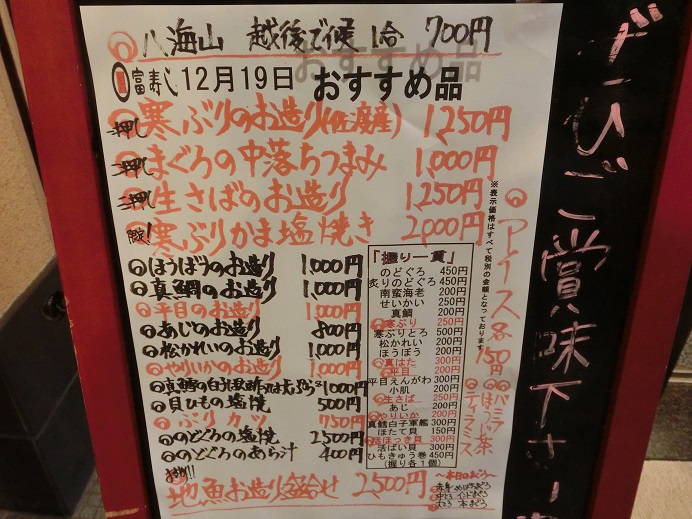 八海山 越後で候 1合 700円
富寿し 12月19日 おすすめ品
一押し 寒ぶりのお造り(佐渡産) 1,250円
二押し まぐろの中落ちつまみ 1,000円
三押し 生さばのお造り 1,250円
寒ぶりかま塩焼き 2,000円
ほうぼうのお造り 1,000円
真鯛のお造り 1,000円
平目のお造り 1,000円
あじのお造り 800円
松かれいのお造り 1,000円
やりいかのお造り 1,000円
真鱈の白子 1,000円
貝ひもの塩焼 500円
ぶりカツ 750円
のどぐろの塩焼 2,500円
のどぐろのあら汁 400円
地魚お造り盛合せ 2,500円
「握り一貫」
のどぐろ 450円
炙りのどぐろ 450円
南蛮海老 200円
せいかい 250円
真鯛 200円
寒ぶり 250円
寒ぶりとろ 500円
松かれい 200円
ほうぼう 200円
真はた 300円
平目 200円
平目えんがわ 300円
小肌 200円
生さば 250円
あじ 200円
やりいか 200円
真鱈白子軍艦 300円
ほたて貝 150円
活ほっき貝 300円
活ばい貝 300円
ひもきゅう巻 450円
(握り各1個)
※表示価格はすべて税別の金額となっております
アイス各150円
バニラ
ほうじ茶
ティラミス
〜本日のまぐろ〜
ぜひご賞味下さい